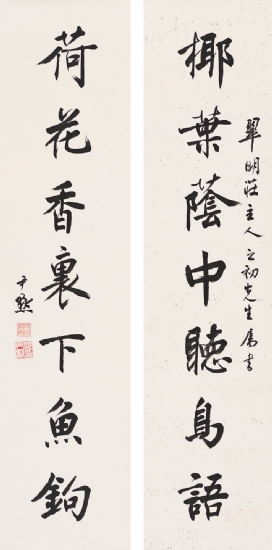 椰葉蔭中聽鳥語
翠明莊主人之初先生屬書
荷花香裏下魚鉤
尹默